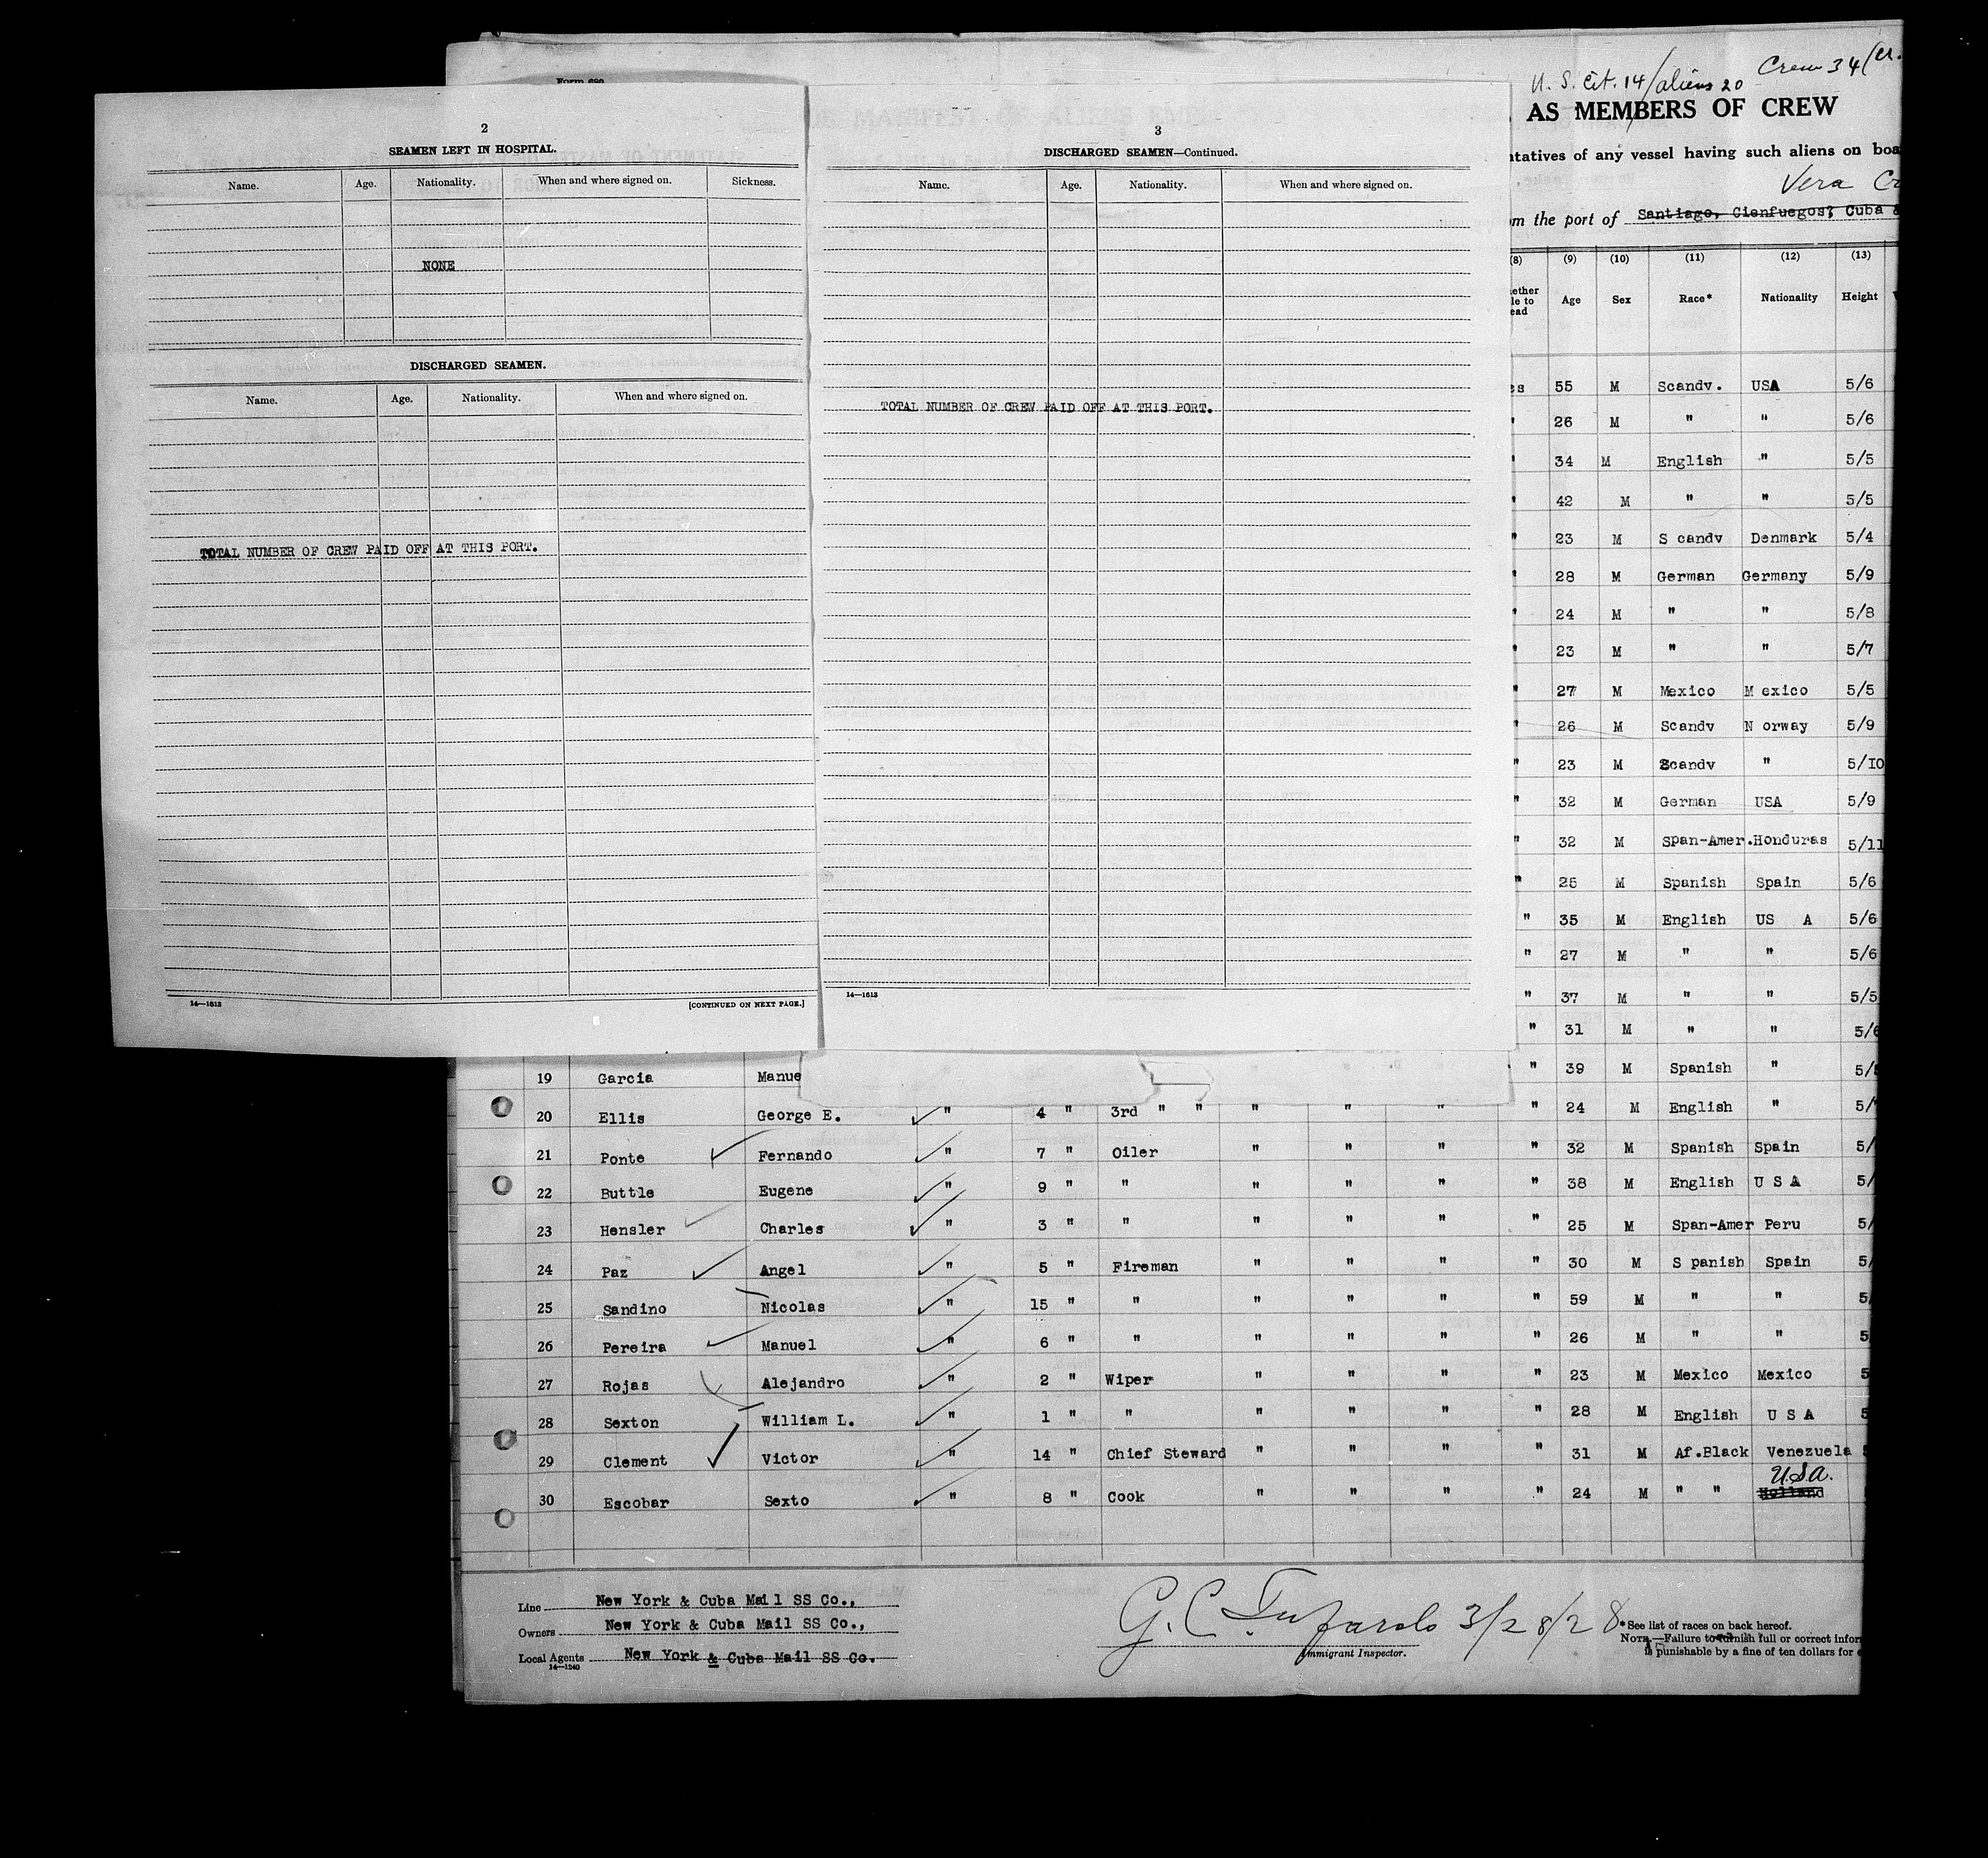 2
SEAMEN LEFT IN HOSPITAL.
Name. Age. Nationality. When and where signed on. Sickness.
NONE
DISCHARGED SEAMEN.
Name. Age. Nationality. When and where signed on.
TOTAL NUMBER OF CREW PAID OFF AT THIS PORT.
14—1613 [CONTINUED ON NEXT PAGE.]
3
DISCHARGED SEAMEN—Continued.
Name. Age. Nationality. When and where signed on.
TOTAL NUMBER OF CREW PAID OFF AT THIS PORT.
14—1613
Crew 34
U. S. Cit. 14/aliens 20
AS MEMBERS OF CREW
tatives of any vessel having such aliens on boa
Vera Cr
om the port of Santiago, Cienfuegos, Cuba &
(8) (9) (10) (11) (12) (13)
ether le to ead Age Sex Race* Nationality Height
es 55 M Scandv. USA 5/6
" 26 M " " 5/6
" 34 M English " 5/5
" 42 M " " 5/5
" 23 M S candv Denmark 5/4
" 28 M German Germany 5/9
" 24 M " " 5/8
" 23 M " " 5/7
" 27 M Mexico M exico 5/5
" 26 M Scandv N orway 5/9
" 23 M Scandv " 5/10
" 32 M German USA 5/9
" 32 M Span-Amer. Honduras 5/11
" 25 M Spanish Spain 5/6
" 35 M English US A 5/6
" 27 M " " 5/6
" 37 M " " 5/5
" 31 M " " 5/6
19 Garcia Manue " 39 M Spanish " 5/
20 Ellis George E. " 4 " 3rd " " " " " " 24 M English " 5/
21 Ponte Fernando " 7 " Oiler " " " " 32 M Spanish Spain 5/
22 Buttle Eugene " 9 " " " " " " 38 M English U S A 5/
23 Hensler Charles " 3 " " " " " " 25 M Span-Amer Peru 5/
24 Paz Angel " 5 " Fireman " " " " 30 M S panish Spain 5/
25 Sandino Nicolas " 15 " " " " " " 59 M " " 5/
26 Pereira Manuel " 6 " " " " " " 26 M " " 5
27 Rojas Alejandro " 2 " Wiper " " " " 23 M Mexico Mexico 5
28 Sexton William L. " 1 " " " " " " 28 M English U S A 5
29 Clement Victor " 14 " Chief Steward " " " " 31 M Af.Black Venezuela 5
U.S.A.
30 Escobar Sexto " 8 " Cook " " " " 24 M " " Holland
Line New York & Cuba Mail SS Co.,
Owners New York & Cuba Mail SS Co.,
Local Agents New York & Cuba Mail SS Co.
14—1240
G. C. 3/28/28
Immigrant Inspector.
*See list of races on back hereof.
NOTE.—Failure to furnish full or correct infor
is punishable by a fine of ten dollars for e